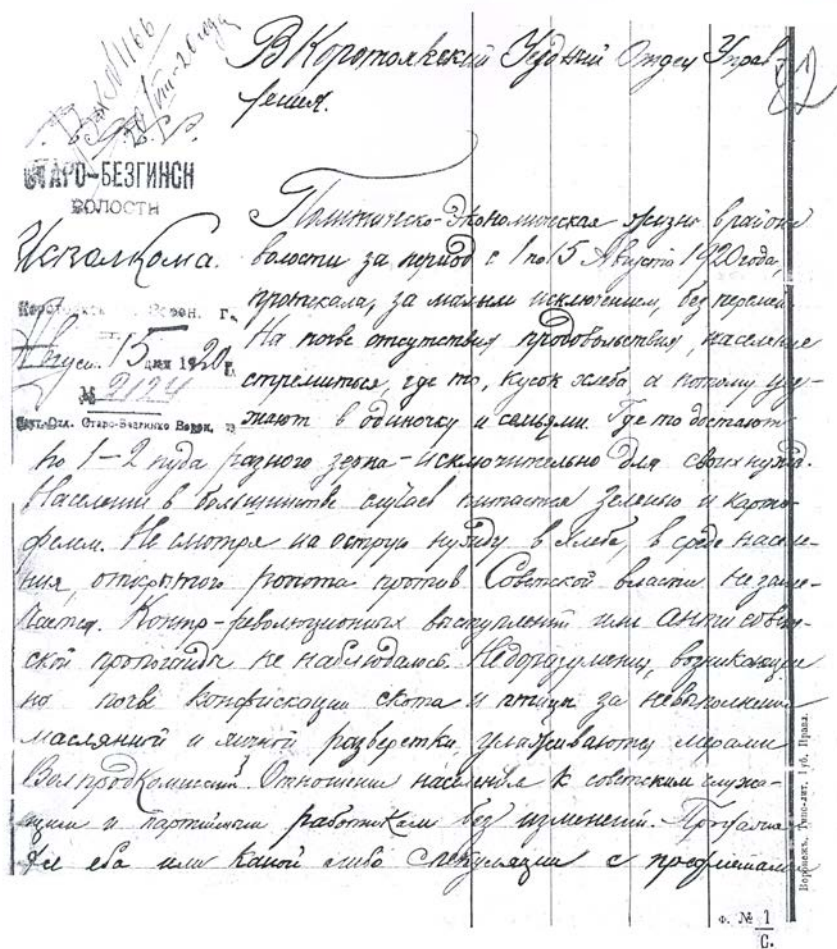 Вх № 1166
20/VIII-20 года
В Коротоякский Уездный Отдел Управ-
ления.
СТАРО-БЕЗГИНСК
ВОЛОСТН
Исполкома.
Ворон. г.
Август 15 дня 1920 г.
№ 2124
Старо-Безгинко Ворон.
Политическо-Экономическая жизнь в районе
волости за период с 1 по 15 Августа 1920 года,
протикала, за малым исключением, без перемен.
На почве отсутствия продовольствия, население
стремиться, где то, кусок хлеба, а потому уез-
жают в одиночку и семьями. Где то достают
по 1-2 пуда разного зерна - исключительно для своих нужд.
Население в большинстве случаев питается зеленью и карто-
фелем. Не смотря на острую нужду в хлебе, в среде населе-
ния, открытого ропота против Советской власти не заме-
чается. Контр-революционных выступлений или антисовет-
ской пропоганды не наблюдалось. Недоразумения, возникающие
на почве конфискации скота и птицы за невыполнение
масляной и яичной разверстки, улаживаются мерами
Волпродкомиссий. Отношение населения к советским служа-
щим и партийным работникам без изменений. Продажи
хлеба или какой либо спекуляции с продуктами
Воронежъ, Типо-лит. Губ. Правл.
Ф. № 1/С.